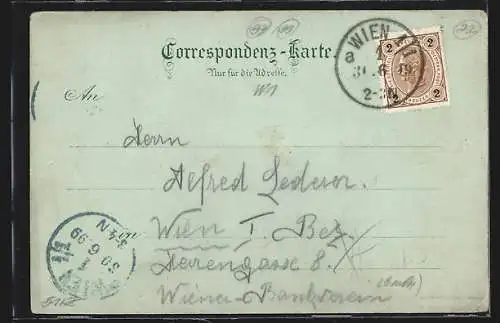 Correspondenz-Karte.
Nur für die Adresse.
WIEN
2-3N
2 2
2 2
An
Herrn
Alfred Lederer
in Wien I. Bez.
Herrengasse 8.
Wiener-Bankverein
WIEN
1/1
30 6 99
3-4N